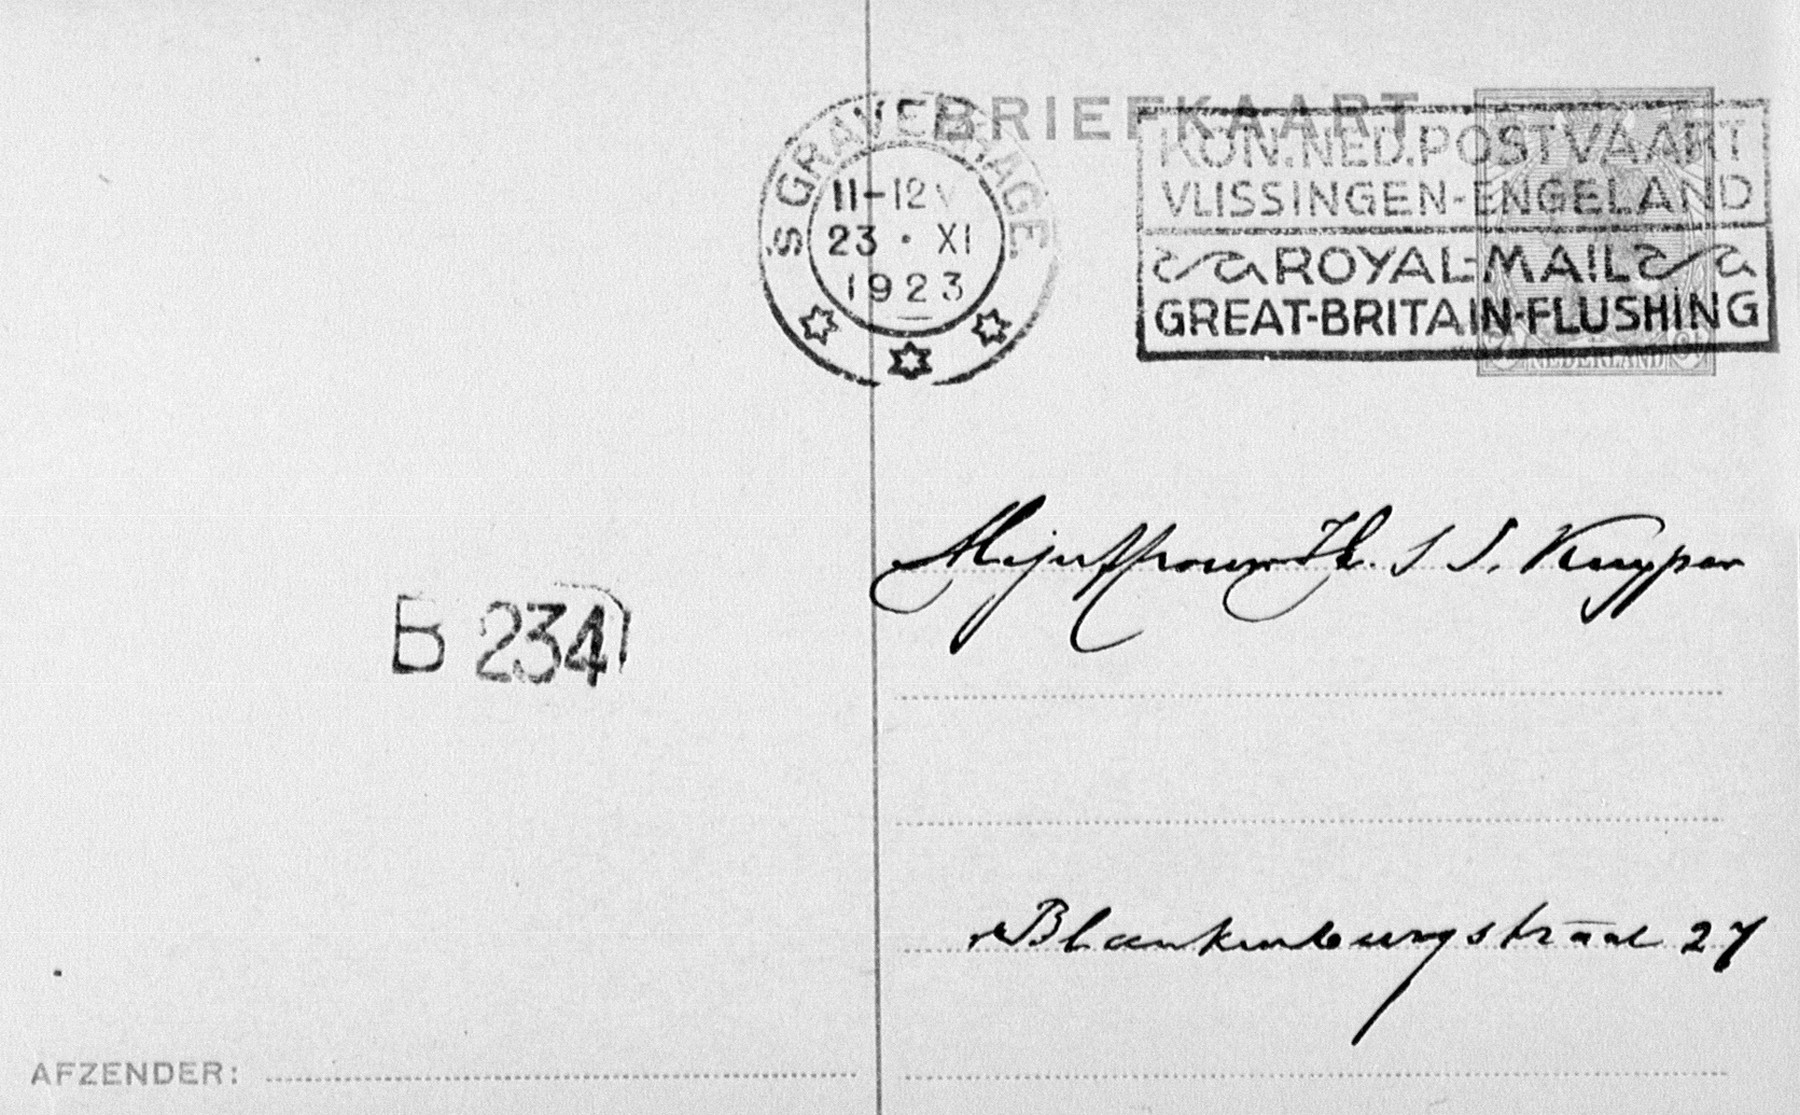 BRIEFKAART
'S GRAVENHAGE.
11-12 V
23 · XI
1923
KON.NED.POSTVAART
VLISSINGEN-ENGELAND
ROYAL-MAIL
GREAT-BRITAIN-FLUSHING
NEDERLAND
Mejuffrouw H. S. Kuyper
B 234
Blankenburgstraat 27
AFZENDER: